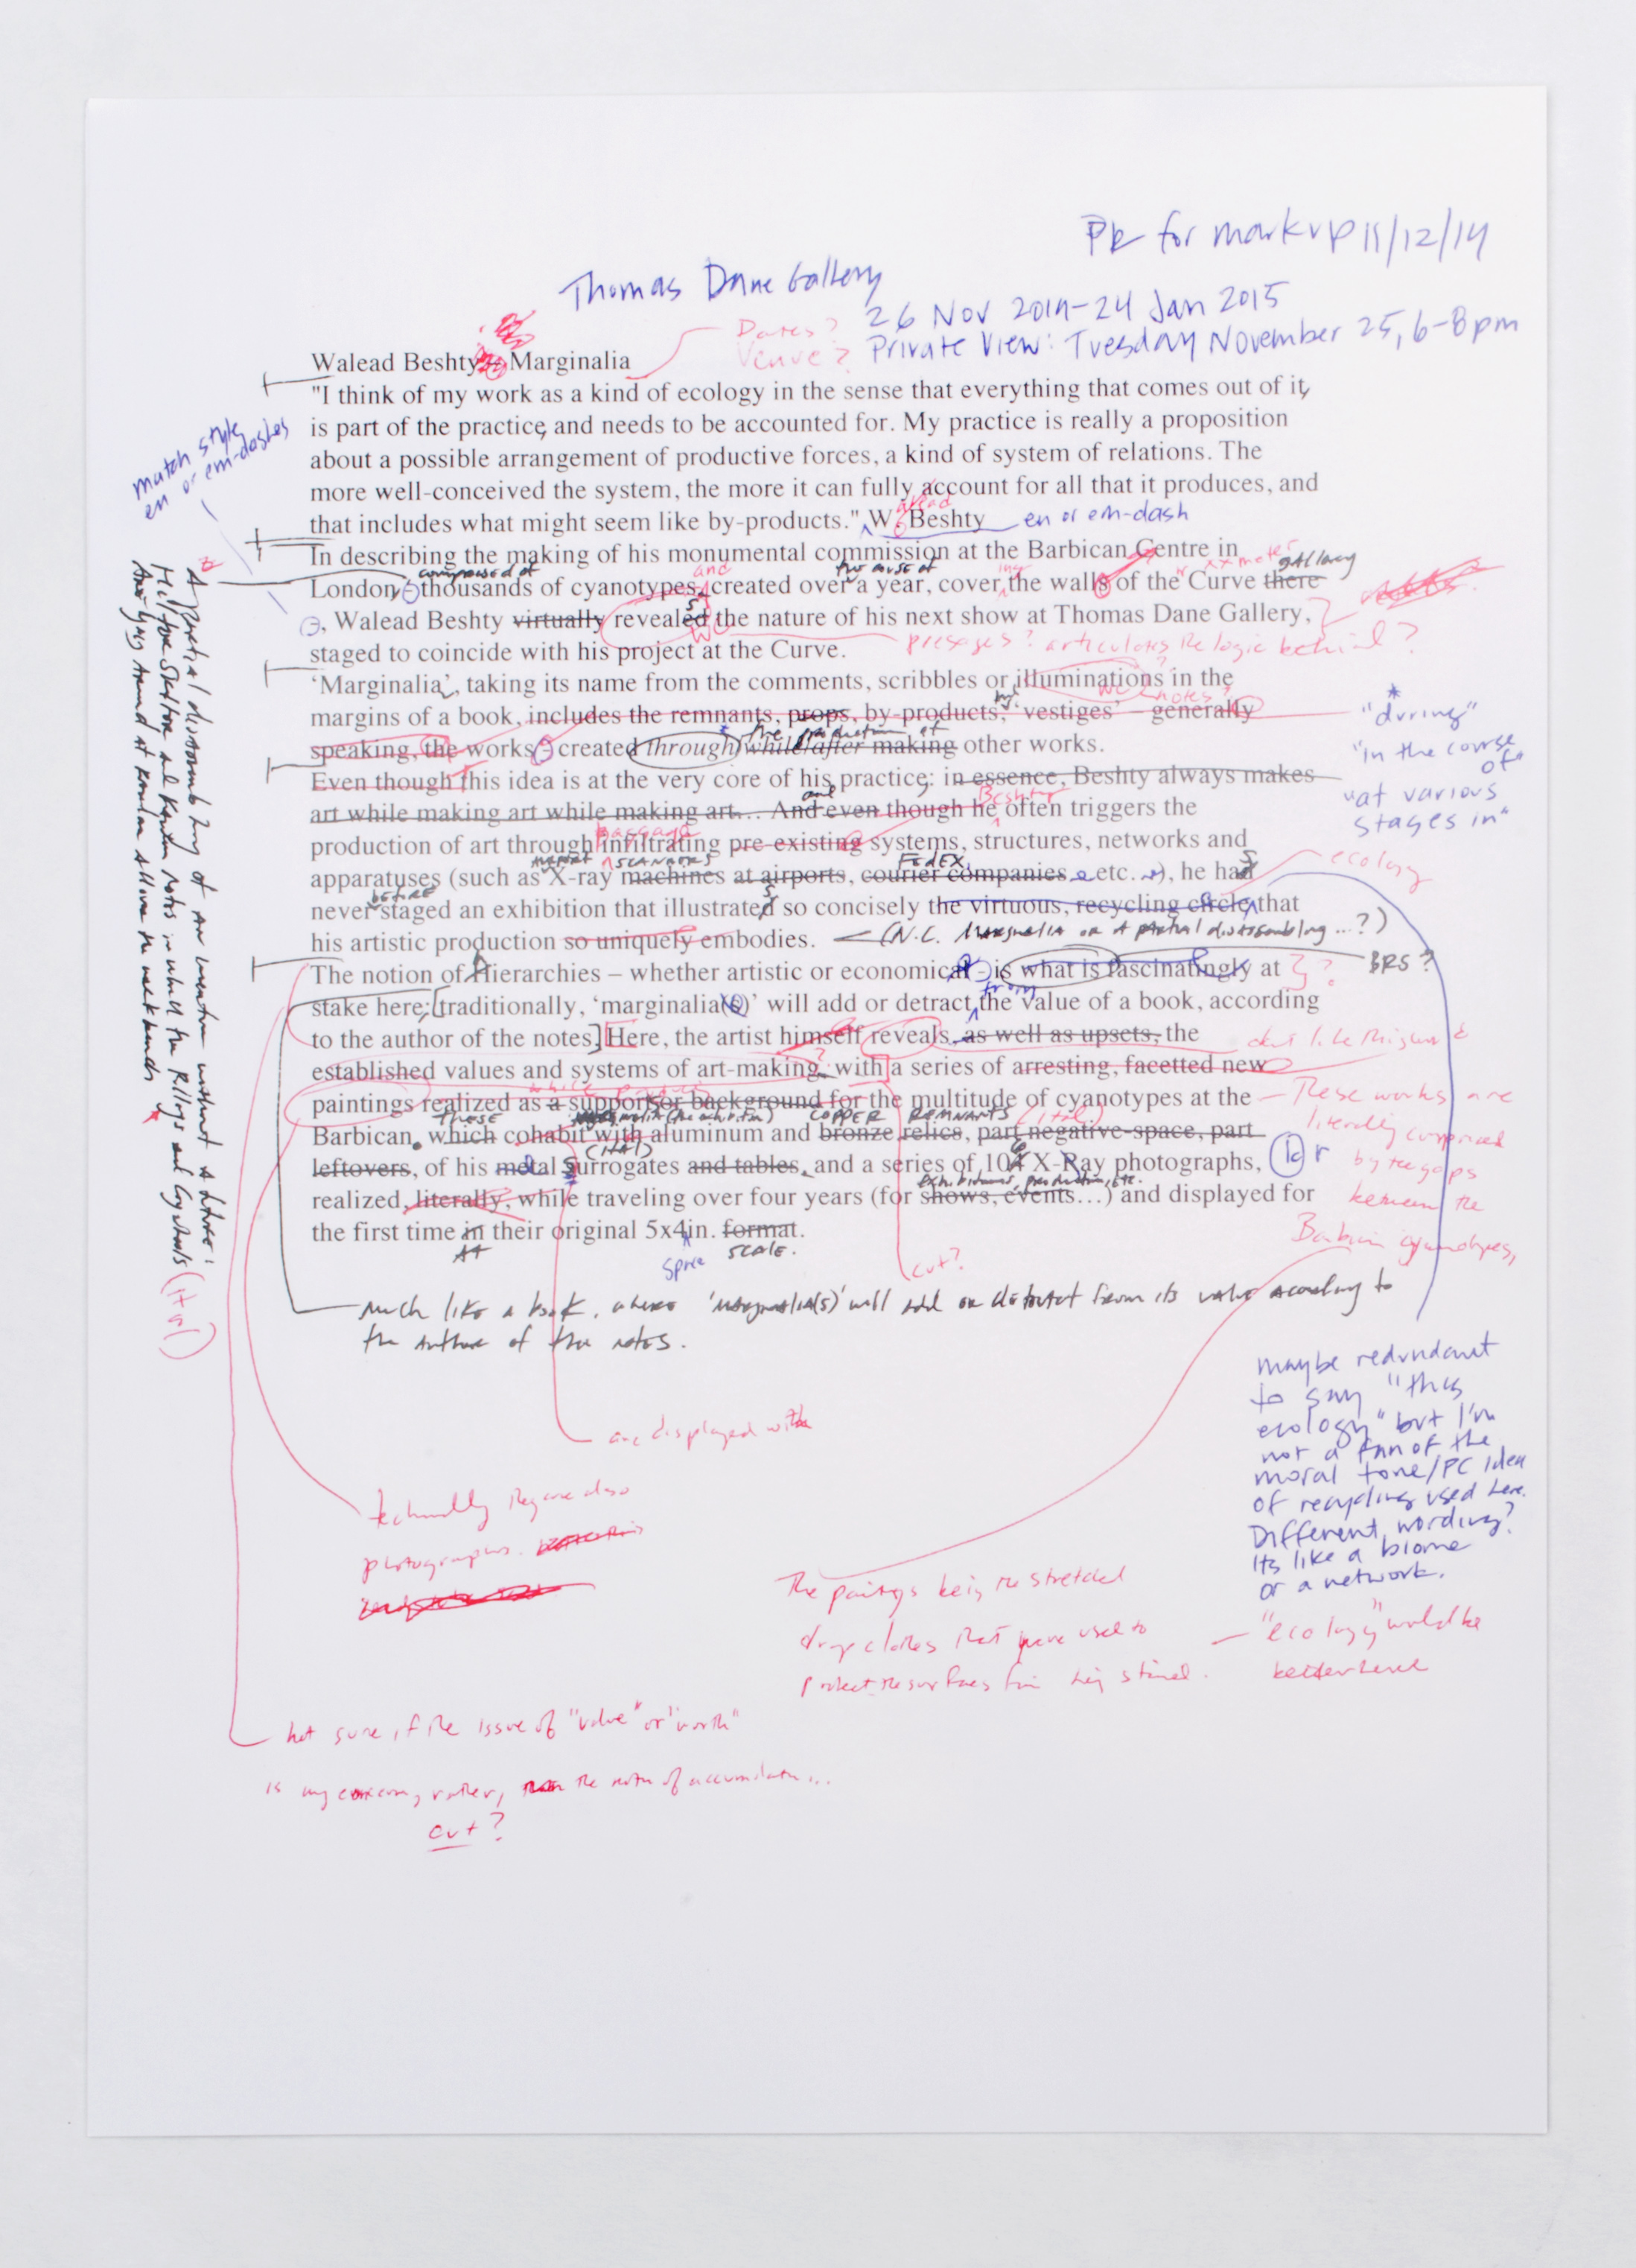 PR for markup 11/12/14
Thomas Dane Gallery
26 Nov 2014–24 Jan 2015
Private View: Tuesday November 25, 6–8pm
Dates?
Venue?
Walead Beshty Marginalia
"I think of my work as a kind of ecology in the sense that everything that comes out of it,
is part of the practice, and needs to be accounted for. My practice is really a proposition
about a possible arrangement of productive forces, a kind of system of relations. The
more well-conceived the system, the more it can fully account for all that it produces, and
that includes what might seem like by-products." W. Beshty
alead
en or em-dash
match style
en or em-dashes
In describing the making of his monumental commission at the Barbican Centre in
composed of
and
the course of
ing
xx meter
gallery
London, thousands of cyanotypes, created over a year, cover the walls of the Curve there
, Walead Beshty virtually revealed the nature of his next show at Thomas Dane Gallery,
WC
presages? articulates the logic behind?
staged to coincide with his project at the Curve.
'Marginalia', taking its name from the comments, scribbles or illuminations in the
WC notes?
margins of a book, includes the remnants, props, by-products, 'vestiges' – generally
the production of
speaking, the works created through/while/after making other works.
* "during"
"in the course of"
"at various stages in"
Even though this idea is at the very core of his practice; in essence, Beshty always makes
and
Beshty
art while making art while making art... And even though he often triggers the
production of art through infiltrating pre-existing systems, structures, networks and
airport
scanners
FedEx,
apparatuses (such as X-ray machines at airports, courier companies etc. ), he had
ecology
before
never staged an exhibition that illustrated so concisely the virtuous, recycling circle, that
his artistic production so uniquely embodies.
(N.L. Marginalia or A partial disassembling...?)
The notion of Hierarchies – whether artistic or economical - is what is fascinatingly at
BRS?
from
stake here; traditionally, 'marginalia(s)' will add or detract the value of a book, according
to the author of the notes. Here, the artist himself reveals, as well as upsets, the
don't like this word
established values and systems of art-making, with a series of arresting, facetted new
paintings realized as a support or background for the multitude of cyanotypes at the
These works are
literally comprised
by the gaps
between the
Barbican cyanotypes,
These
COPPER REMNANTS (ital)
Barbican, which cohabit with aluminum and bronze relics, part negative-space, part
(ital)
leftovers, of his metal surrogates and tables, and a series of 104 X-Ray photographs,
exhibitions, production, etc.
realized, literally, while traveling over four years (for shows, events...) and displayed for
the first time in their original 5x4in. format.
At
space
scale.
cut?
Much like a book, where 'marginalia(s)' will add or detract from its value according to
the author of the notes.
are displayed with
technically they are also
photographs.
The paintings being the stretched
drop clothes that were used to
protect the surfaces from being stained.
maybe redundant
to say "this
ecology" but I'm
not a fan of the
moral tone/PC idea
of recycling used here.
Different wording?
Its like a biome
or a network.
"ecology" would be
better here
not sure if the issue of "value" or "worth"
is my concern, rather, the notion of accumulation...
cut?
A partial disassembling of an invention without a future:
(ital)